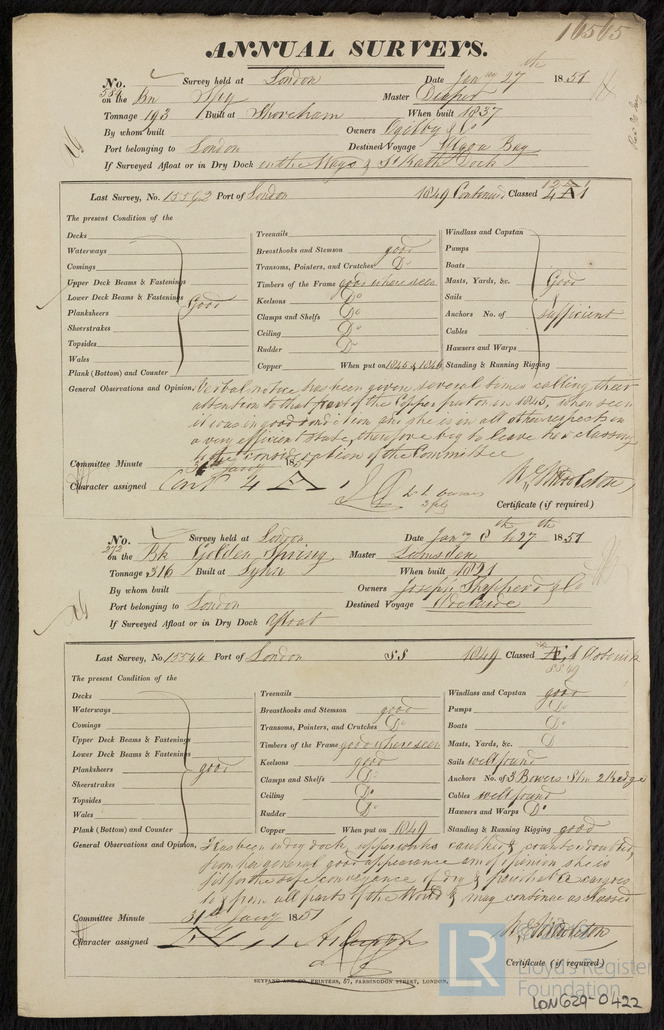 16565
ANNUAL SURVEYS.
No. 554 Survey held at London Date Jany 27th 1851
on the Bn Master Draper
Tonnage 193 Built at Shoreham When built 1837
By whom built Owners Ogilby & Co
Port belonging to London Destined Voyage Algoa Bay
If Surveyed Afloat or in Dry Dock in the & St Kath Dock
Last Survey, No. 15592 Port of London 1849 Continued Classed A 1
The present Condition of the
Decks
Waterways
Comings
Upper Deck Beams & Fastenings
Lower Deck Beams & Fastenings
Plansheers
Sheerstrakes
Topsides
Wales
Plank (Bottom) and Counter
Good
Treenails
Breasthooks and Stemson good
Transoms, Pointers, and Crutches Do
Timbers of the Frame good where seen
Keelsons Do
Clamps and Shelfs Do
Ceiling Do
Rudder Do
Copper When put on 1845 & 1846
Windlass and Capstan
Pumps
Boats
Masts, Yards, &c.
Sails
Anchors No. of
Cables
Hawsers and Warps
Standing & Running Rigging
Good
Sufficient
General Observations and Opinion, Verbal notice has been given several times calling their
attention to that part of the Copper put on in 1845, when seen
it was in good condition and she is in all other respects in
a very efficient state, therefore beg to leave her classing
to the consideration of the Committee
Committee Minute 31st Jany 1851
Character assigned Cont A
Certificate (if required)
No. 272 Survey held at London Date Jany & 27th 1851
on the Bk Golden Spring Master Lumsden
Tonnage 316 Built at When built
By whom built Owners Joseph Sheppard & Co
Port belonging to London Destined Voyage Adelaide
If Surveyed Afloat or in Dry Dock Afloat
Last Survey, No. 15544 Port of London SS 1849 Classed
SS 49
The present Condition of the
Decks
Waterways
Comings
Upper Deck Beams & Fastenings
Lower Deck Beams & Fastenings
Planksheers
Sheerstrakes
Topsides
Wales
Plank (Bottom) and Counter
good
Treenails
Breasthooks and Stemson good
Transoms, Pointers, and Crutches Do
Timbers of the Frame good where seen
Keelsons good
Clamps and Shelfs Do
Ceiling Do
Rudder Do
Copper When put on 1849
Windlass and Capstan good
Pumps Do
Boats Do
Masts, Yards, &c. D
Sails well found
Anchors No. of 3 Bowers Stm 2 Kedge
Cables well found
Hawsers and Warps Do
Standing & Running Rigging good
General Observations and Opinion, Has been in dry dock, upperworks caulked &
from her general good appearance am of opinion she is
fit for the safe conveyance of dry & perishable cargoes
to & from all parts of the World & may continue as classed
Committee Minute 31st Jany 1851
Character assigned
Certificate (if required)
SEYFANG AND CO. PRINTERS, 57, FARRINGDON STREET, LONDON.
LR Lloyd's Register
Foundation
LON629-0422